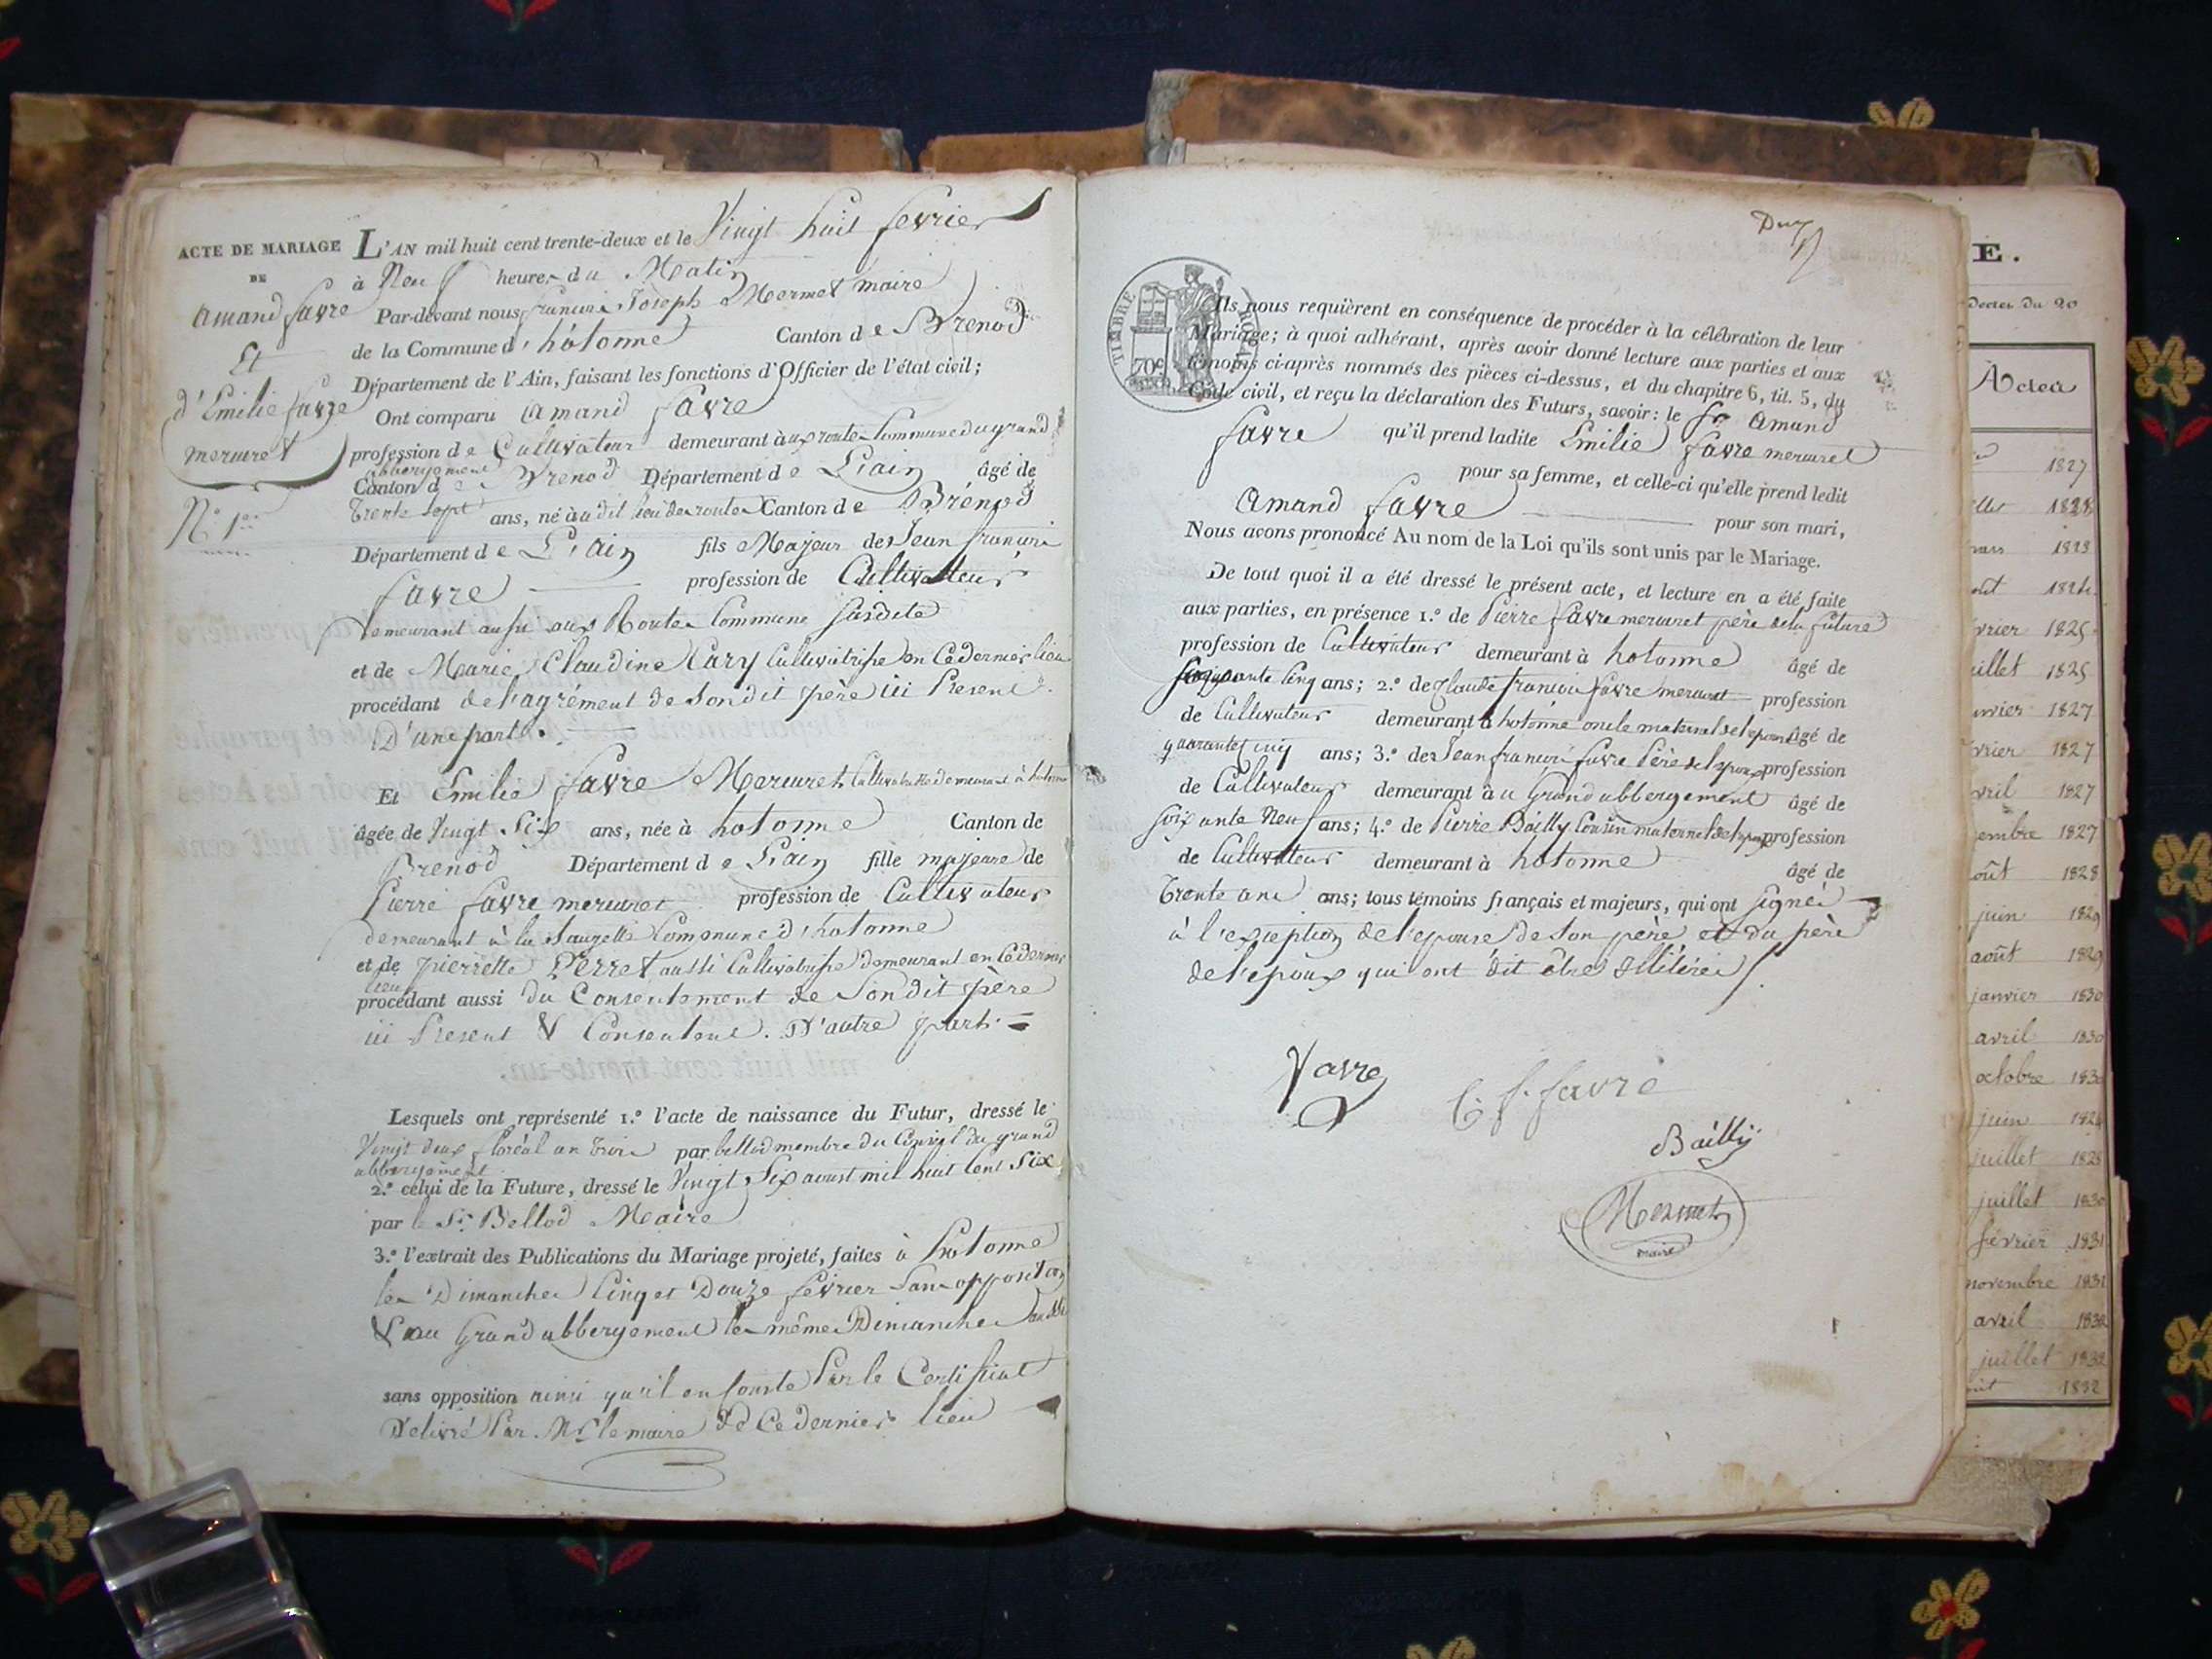 ACTE DE MARIAGE
DE
Amand favre
Et
d'Emilie favre
mercuret
N.° 1er
L'AN mil huit cent trente-deux et le Vingt huit fevrier
à Neuf heures du Matin
Par-devant nous françois Joseph Mermet maire
de la Commune d'hotonne Canton de Brenod
Département de l'Ain, faisant les fonctions d'Officier de l'état civil;
Ont comparu Amand favre
profession de Cultivateur demeurant aux routes Commune du grand
abbergement
Canton de Brenod Département de L'ain âgé de
Trente sept ans, né audit lieu des routes Canton de Brénod
Département de L'Ain fils Majeur de Jean françois
favre profession de Cultivateur
Demeurant aussi aux Routes Commune susdite
et de Marie Claudine Cary Cultivatrisse en Ce dernier lieu
procédant de l'agrément de Son dit père ici Present
D'une part.
Et Emilie favre Mercuret Cultivatrisse demeurant à hotonne
âgée de Vingt Six ans, née à hotonne Canton de
Brenod Département de L'ain fille majeure de
Pierre favre mercuret profession de Cultivateur
demeurant à la Sauzette Commune d'hotonne
et de pierrette Perret aussi Cultivatrisse demeurant en Ce dernier
lieu
procédant aussi du Consentement de Son dit père
ici Present & Consentent. D'autre part.
Lesquels ont représenté 1.° l'acte de naissance du Futur, dressé le
Vingt deux floréal an trois par bellod membre du Conseil du grand
abbergement
2.° celui de la Future, dressé le Vingt Six aoust mil huit Cent Six
par le Sr Bellod Maire
3.° l'extrait des Publications du Mariage projeté, faites à hotonne
les Dimanches Cinq et Douze fevrier Sans opposition
& au Grand abbergement les mêmes Dimanches aussi
sans opposition ainsi qu'il en Conste Par le Certificat
Delivré Par Mr le maire de Ce dernier lieu
TIMBRE ROYAL
70c
Ils nous requièrent en conséquence de procéder à la célébration de leur
Mariage; à quoi adhérant, après avoir donné lecture aux parties et aux
témoins ci-après nommés des pièces ci-dessus, et du chapitre 6, tit. 5, du
Code civil, et reçu la déclaration des Futurs, savoir: le Sr Amand
favre qu'il prend ladite Emilie favre mercuret
pour sa femme, et celle-ci qu'elle prend ledit
Amand favre pour son mari,
Nous avons prononcé Au nom de la Loi qu'ils sont unis par le Mariage.
De tout quoi il a été dressé le présent acte, et lecture en a été faite
aux parties, en présence 1.° de Pierre favre mercuret père de la future
profession de Cultivateur demeurant à hotonne âgé de
Cinq ans; 2.° de Claude françois favre mercuret profession
de Cultivateur demeurant à hotonne oncle maternel de l'epouse âgé de
quarante cinq ans; 3.° de Jean françois favre Père de l'epoux profession
de Cultivateur demeurant au Grand abbergement âgé de
soixante Neuf ans; 4.° de Pierre Bailly Cousin maternel de l'epoux profession
de Cultivateur demeurant à hotonne âgé de
Trente ans ans; tous témoins français et majeurs, qui ont signés
à l'exception de l'epouse de Son père et du père
de l'epoux qui ont dit être illitérés
favre
C. f. favre
Bailly
Mermet
maire
E.
Actes
1827
1828
1823
1824
vrier 1825
uillet 1825
nvier 1827
vrier 1827
vril 1827
embre 1827
oût 1828
juin 1829
août 1829
janvier 1830
avril 1830
octobre 1830
juin 1826
juillet 1828
juillet 1830
février 1831
novembre 1831
avril 1832
juillet 1832
1832